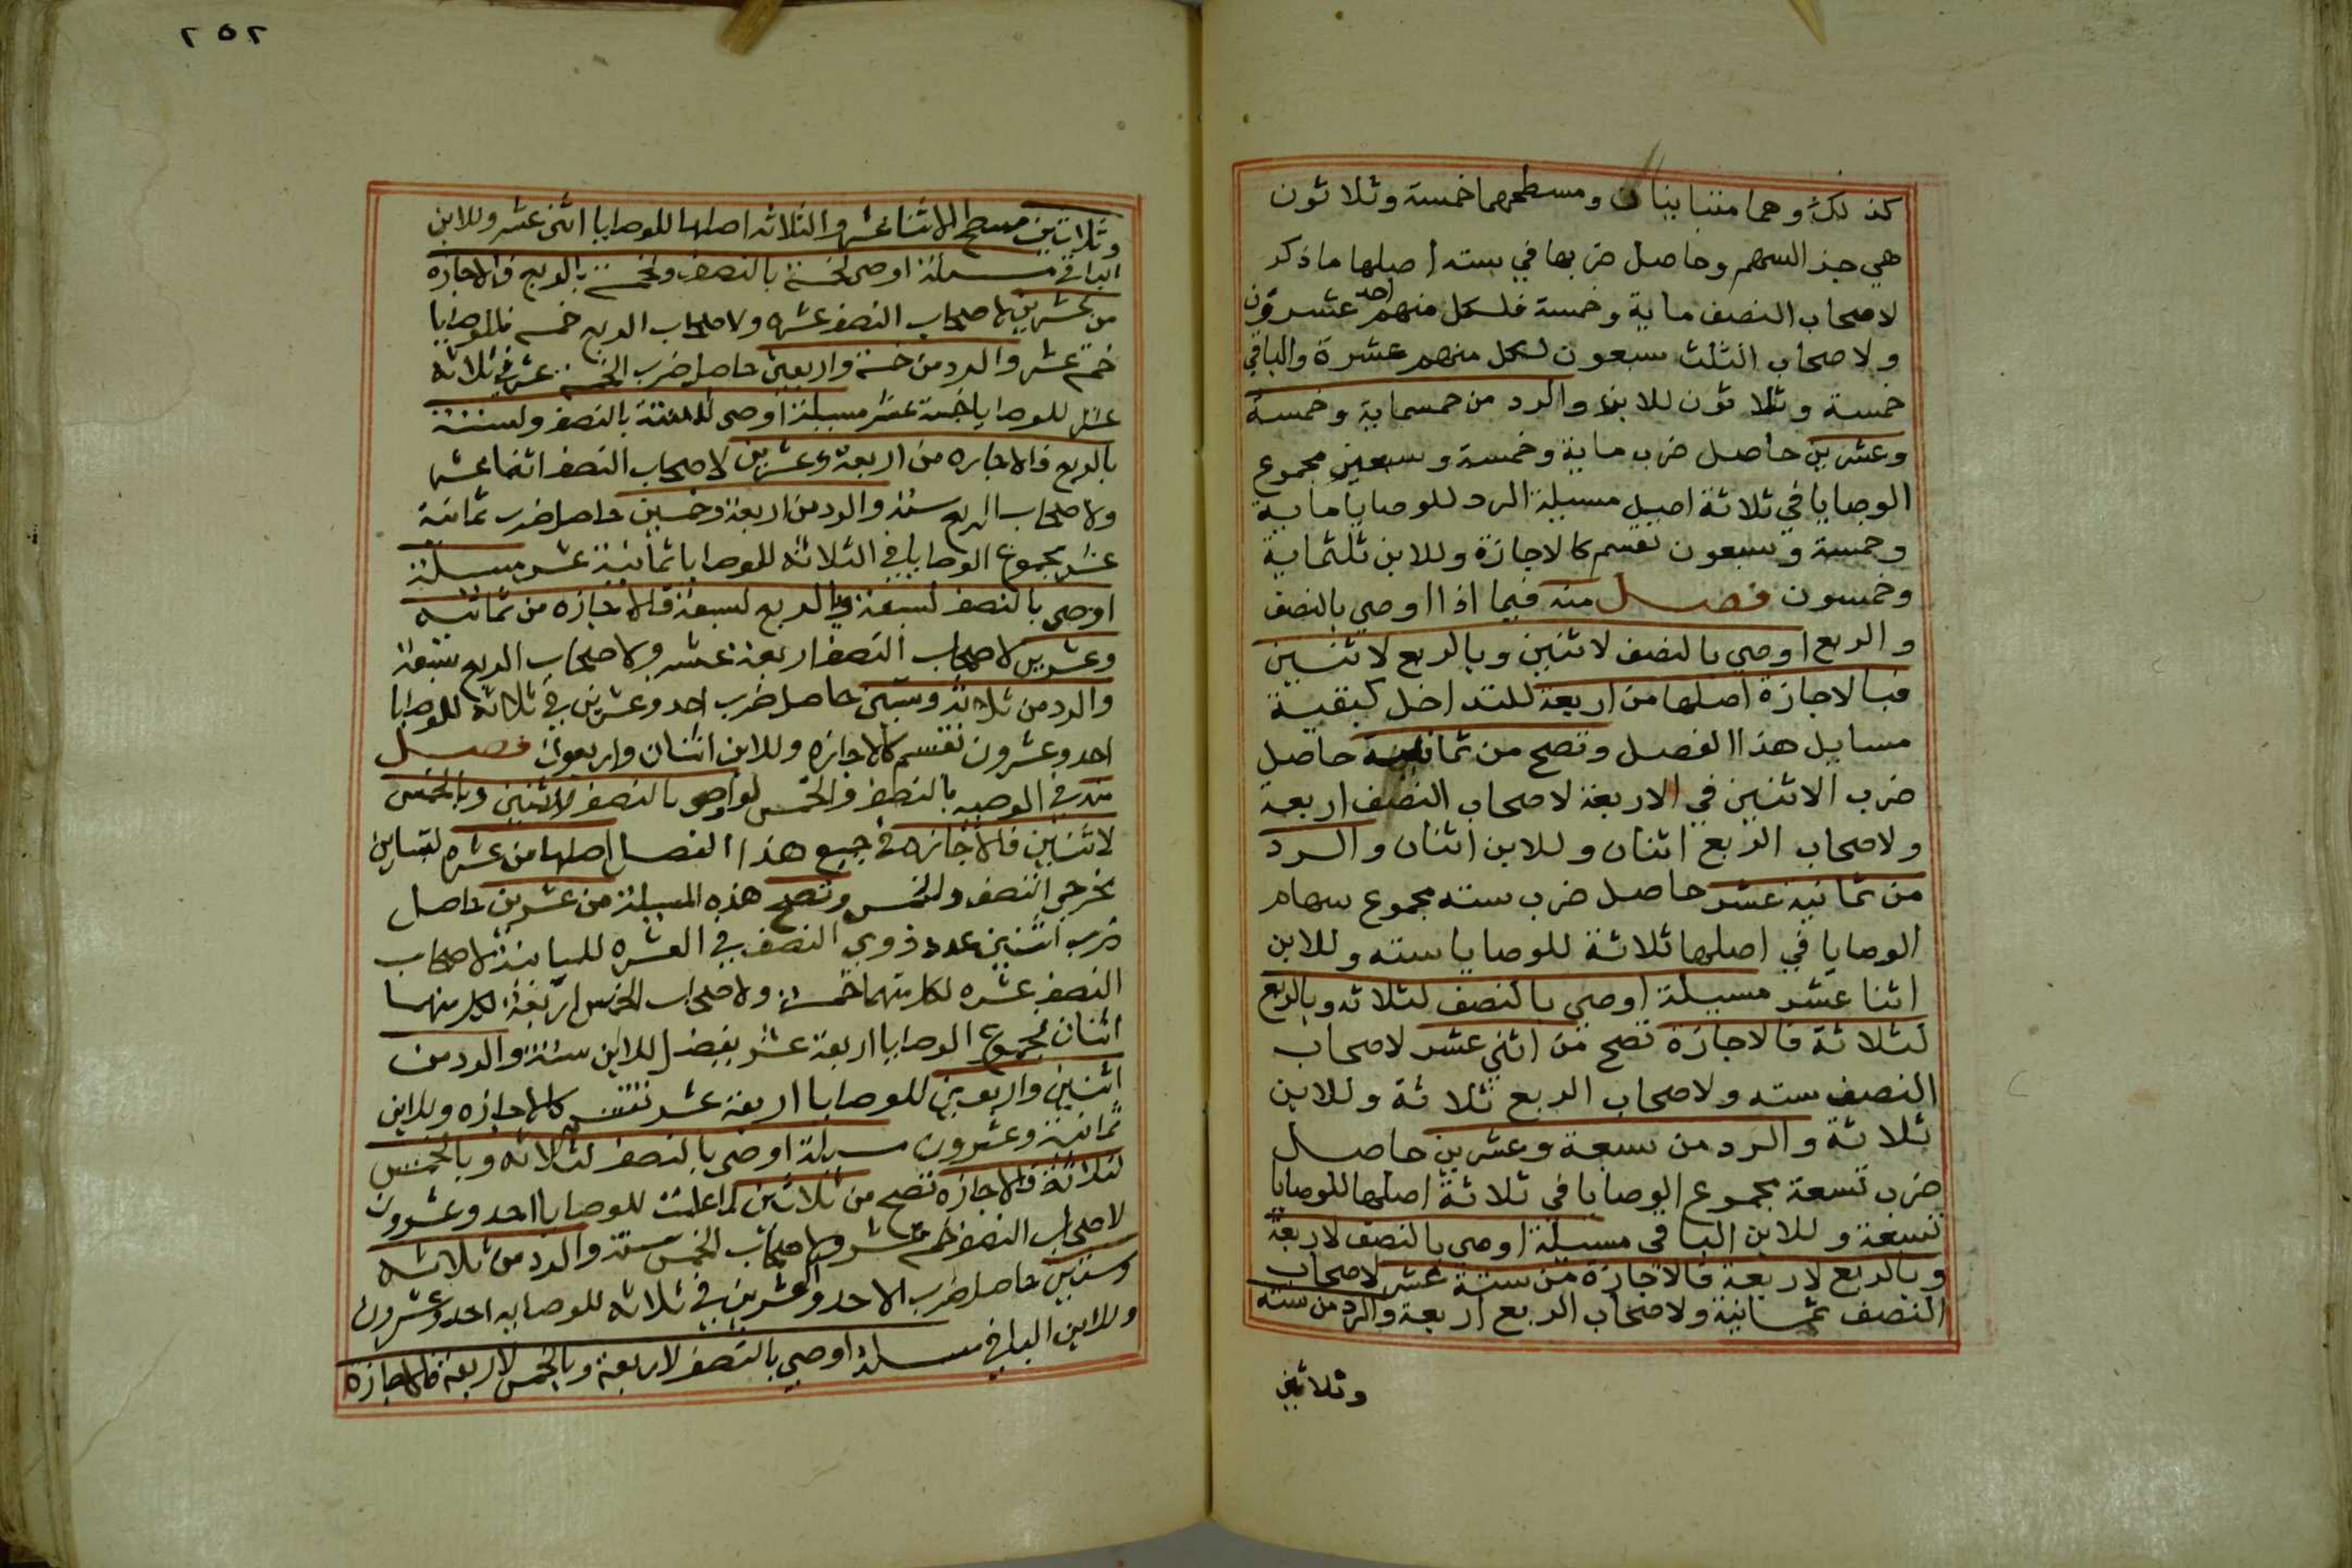 كذلك وهما متباينان ومسطحهما خمسة وثلاثون
هي جذ السهم وحاصل ضربها في سته اصلها ما ذكر
لاصحاب النصف ماية وخمسة فلكل منهم احد عشرون
ولاصحاب الثلث سبعون لكل منهم عشرة والباقي
خمسة وثلاثون للابن والرد من خمسماية وخمسة
وعشرين حاصل ضرب ماية وخمسة وسبعين مجموع
الوصايا في ثلاثة اصيل مسيلة الرد للوصايا ماية
وخمسة وسبعون تقسم كالاجازة وللابن ثلثماية
وخمسون فصل منه فيما اذا اوصي بالنصف
والربع اوصي بالنصف لاثنين وبالربع لاثنين
فبالاجازة اصلها من اربعة للتداخل كبقية
مسايل هذا الفصل وتصح من ثمانية حاصل
ضرب الاثنين في الاربعة لاصحاب النصف اربعة
ولاصحاب الربع اثنان وللابن اثنان والرد
من ثمانية عشر حاصل ضرب سته مجموع سهام
الوصايا في اصلها ثلاثة للوصايا سته وللابن
اثنا عشر مسيلة اوصي بالنصف لثلاثه وبالربع
لثلاثة فالاجازة تصح من اثني عشر لاصحاب
النصف سته ولاصحاب الربع ثلاثة وللابن
ثلاثة والرد من سبعة وعشرين حاصل
ضرب تسعة مجموع الوصايا في ثلاثة اصلها للوصايا
تسعة وللابن الباقي مسيلة اوصي بالنصف لاربعة
وبالربع لاربعة فالاجازة من ستة عشر لاصحاب
النصف ثمانية ولاصحاب الربع اربعة والرد من سته
وثلاثين
٢٥٢
وثلاثين مسطح الاثنا عشر والثلاثه اصلها للوصايا اثنى عشر وللابن
الباقي مسيلة اوصى لخمسة بالنصف ولخمسة بالربع فالاجازه
من عشرين لاصحاب النصف عشره ولاصحاب الربع خمسه فللوصايا
خمسة عشر والرد من خمسة واربعين حاصل ضرب الخمسة عشر في ثلاثة
عشر للوصايا خمسة عشر مسيلة اوصى لستة بالنصف ولستة
بالربع فالاجازه من اربعة وعشرين لاصحاب النصف اثنا عشر
ولاصحاب الربع سته والرد من اربعة وخمسين حاصل ضرب ثمانية
عشر مجموع الوصايا في الثلاثه للوصايا ثمانية عشر مسيلة
اوصى بالنصف لسبعة وبالربع لسبعة فالاجازه من ثمانيه
وعشرين لاصحاب النصف اربعة عشر ولاصحاب الربع سبعة
والرد من ثلاثة وستين حاصل ضرب احد وعشرين في ثلاثة للوصايا
احد وعشرون تقسم كالاجازه وللابن اثنان واربعون فصل
منه في الوصيه بالنصف والخمس لو اوصى بالنصف لاثنين وبالخمس
لاثنين فالاجازه في جميع هذا الفصل اصلها من عشره لتباين
مخرجي النصف والخمس وتصح هذه المسيلة من عشرين حاصل
ضرب اثنين عدد ذوي النصف في العشره للمباينة لاصحاب
النصف عشره لكل منهما خمسة ولاصحاب الخمس اربعة لكل منهما
اثنان مجموع الوصايا اربعة عشر يفضل للابن ستة والرد من
اثنين واربعين للوصايا اربعة عشر تقسم كالاجازه وللابن
ثمانية وعشرون مسيلة اوصى بالنصف لثلاثه وبالخمس
لثلاثة فالاجازه تصح من ثلاثين لما علمت للوصايا احد وعشرون
لاصحاب النصف خمسة عشر ولاصحاب الخمس ستة والرد من ثلاثه
وستين حاصل ضرب الاحد والعشرين في ثلاثه للوصايه احد وعشرون
وللابن الباقي مسيلة اوصي بالنصف لاربعة وبالخمس لاربعة فالاجازة